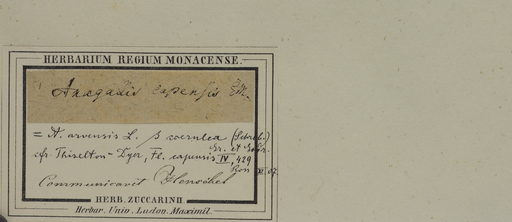 HERBARIUM REGIUM MONACENSE.
Anagallis capensis
= A. arvensis L. β coerulea (Schreb.)
Gr. et Godr.
cfr. Thiselton-Dyer, Fl. capensis IV, 429
XI. 07.
Communicavit Henschel
HERB. ZUCCARINII.
Herbar. Univ. Ludov. Maximil.